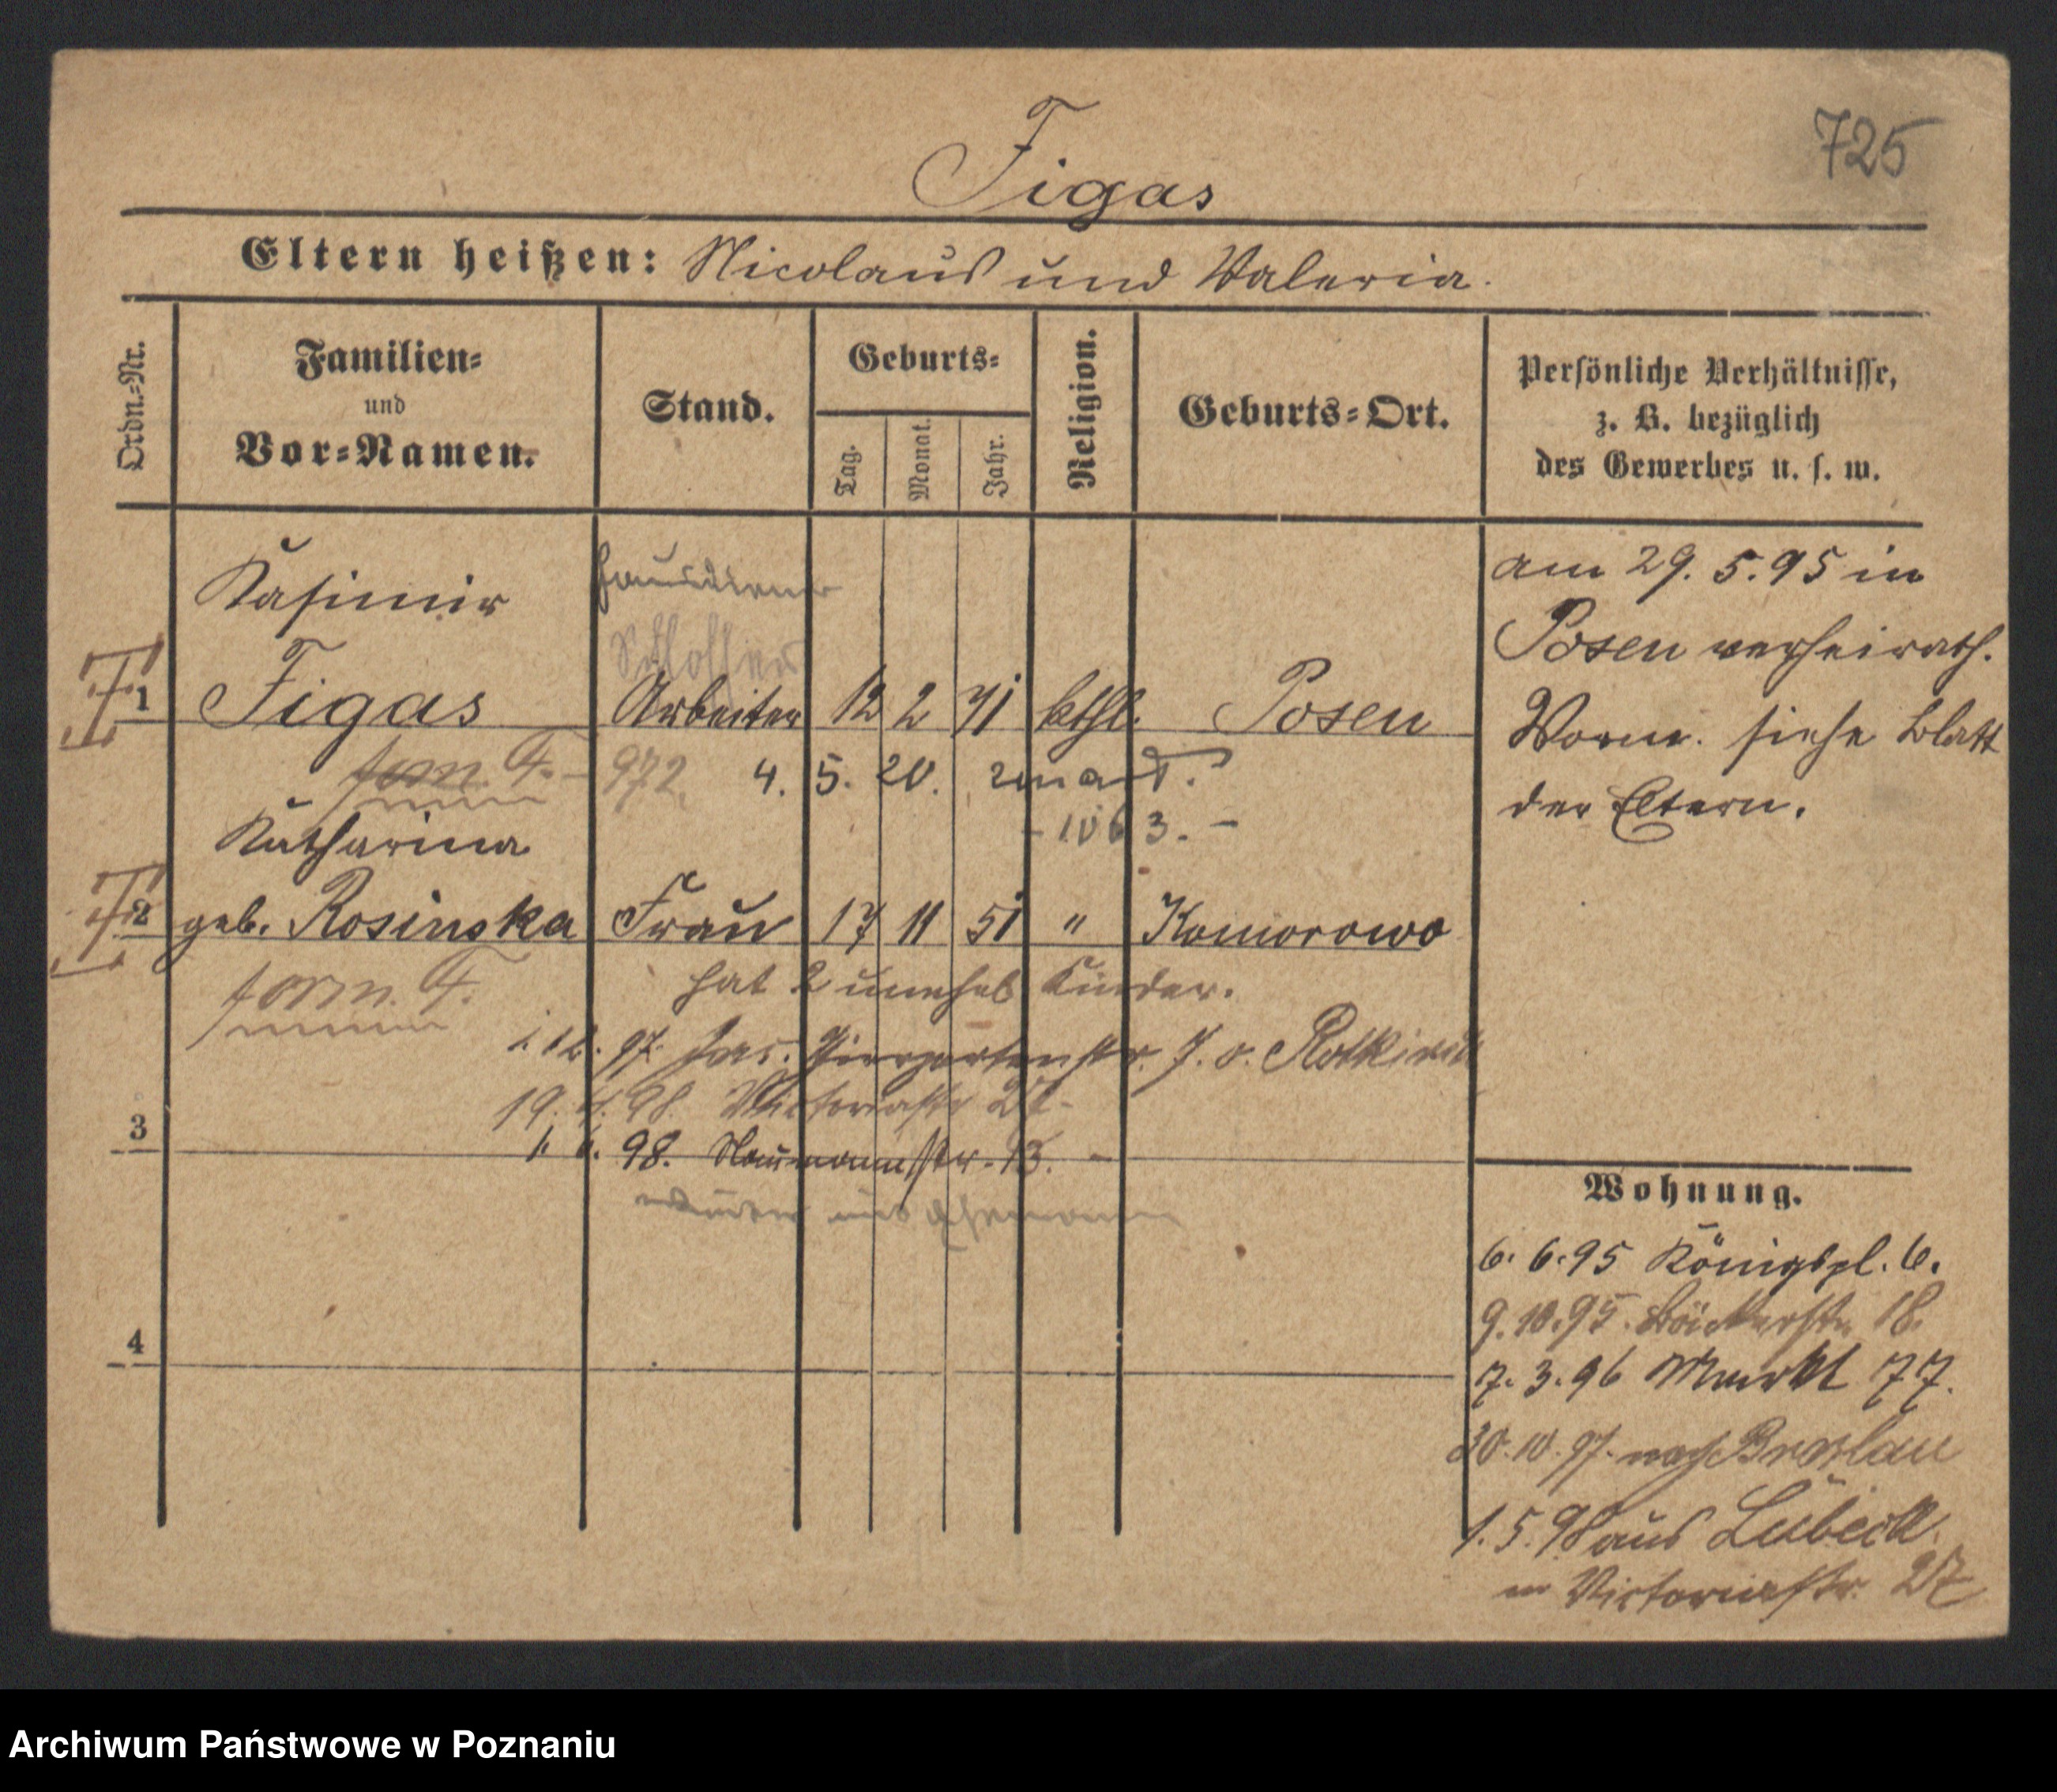 725
Figas
Eltern heißen: Nicolaus und Valeria.
Ordn.-Nr.
Familien-
und
Vor-Namen.
Stand.
Geburts-
Tag.
Monat.
Jahr.
Religion.
Geburts-Ort.
Persönliche Verhältnisse,
z. B. bezüglich
des Gewerbes u. s. w.
Kasimir
Hausdiener
Schlosser
1 Figas Arbeiter 12 2 71 kthl. Posen
form. F. 972. 4. 5. 20.
-1063.-
Katharina
2 geb. Rosinska Frau 17 11 51 " Komorowo
form. F. hat 2 unehel Kinder.
97. 7. v.
19. 4. 98. Victoriastr 27.
3
98. Naumannstr. 13. -
4
am 29. 5. 95 in
Posen verheirath.
Vorm. siehe Blatt
der Eltern.
Wohnung.
6. 6. 95 Königspl. 6.
9. 10. 95. Bäckerstr. 18.
7. 3. 96 Markt 77.
30. 10. 97. nach Breslau
1. 5. 98 aus Lübeck
Victoriastr. 27
Archiwum Państwowe w Poznaniu